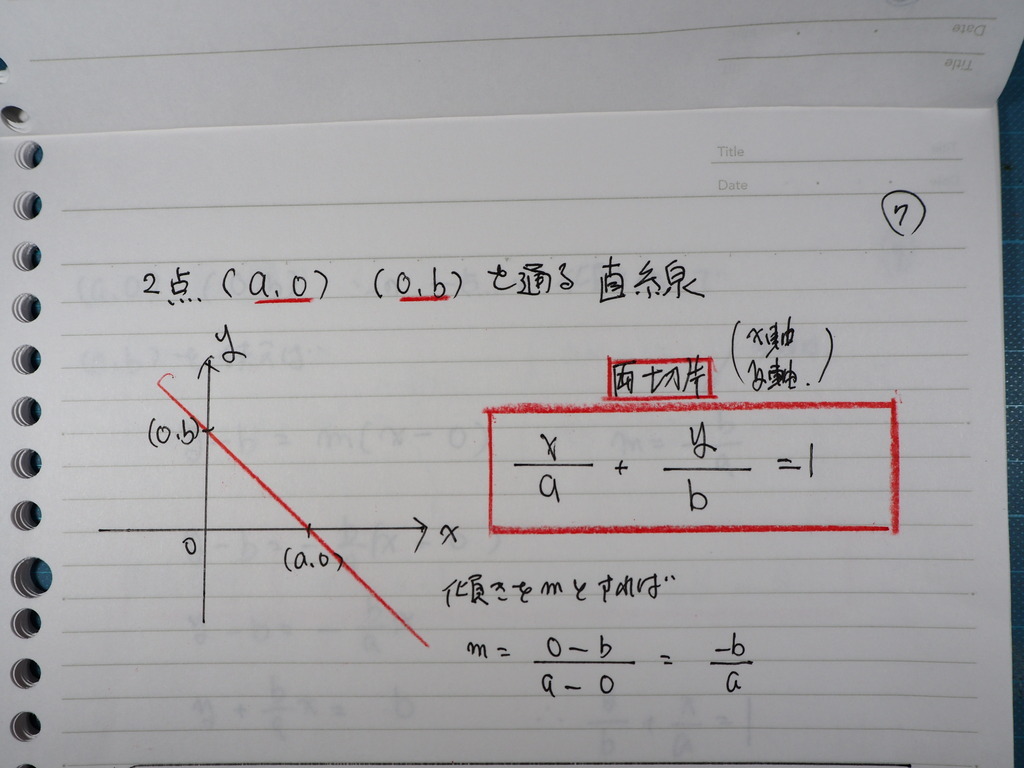 Date
Title
Title
Date
⑦
2点 (a,0) (0,b) を通る 直線
y
両切片 (x軸 y軸.)
(0,b)
x/a + y/b = 1
0
(a,0)
x
傾きをmとすれば
m = 0-b/a-0 = -b/a